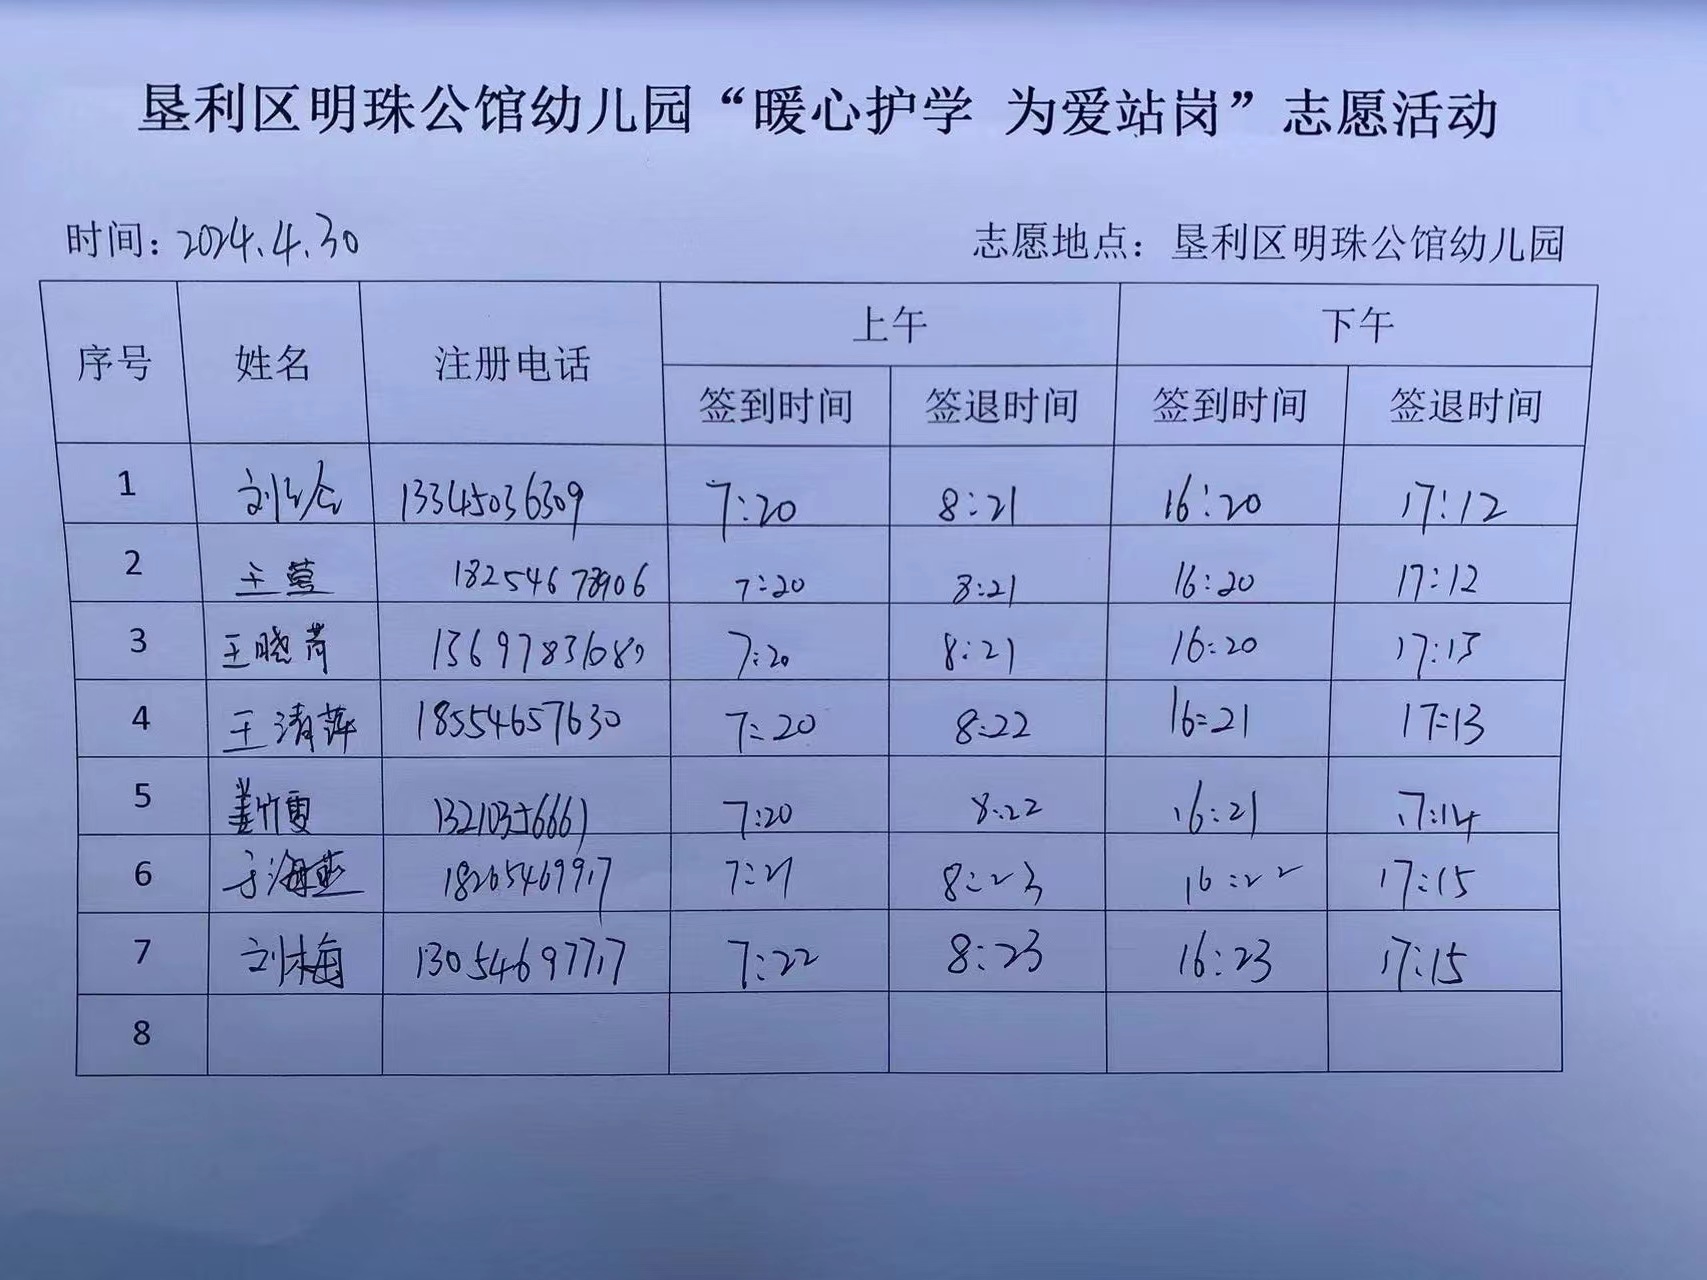 垦利区明珠公馆幼儿园“暖心护学 为爱站岗”志愿活动
时间：2024.4.30 志愿地点：垦利区明珠公馆幼儿园
序号 姓名 注册电话 上午 下午
签到时间 签退时间 签到时间 签退时间
1 13345036309 7:20 8:21 16:20 17:12
2 王莹 7:20 8:21 16:20 17:12
3 王晓芳 7:20 8:21 16:20 17:13
4 王清萍 18554657630 7:20 8:22 16:21 17:13
5 姜竹雪 13210356661 7:20 8:22 16:21 17:14
6 于海燕 18265469917 7:21 8:23 16:22 17:15
7 刘梅 13054697717 7:22 8:23 16:23 17:15
8